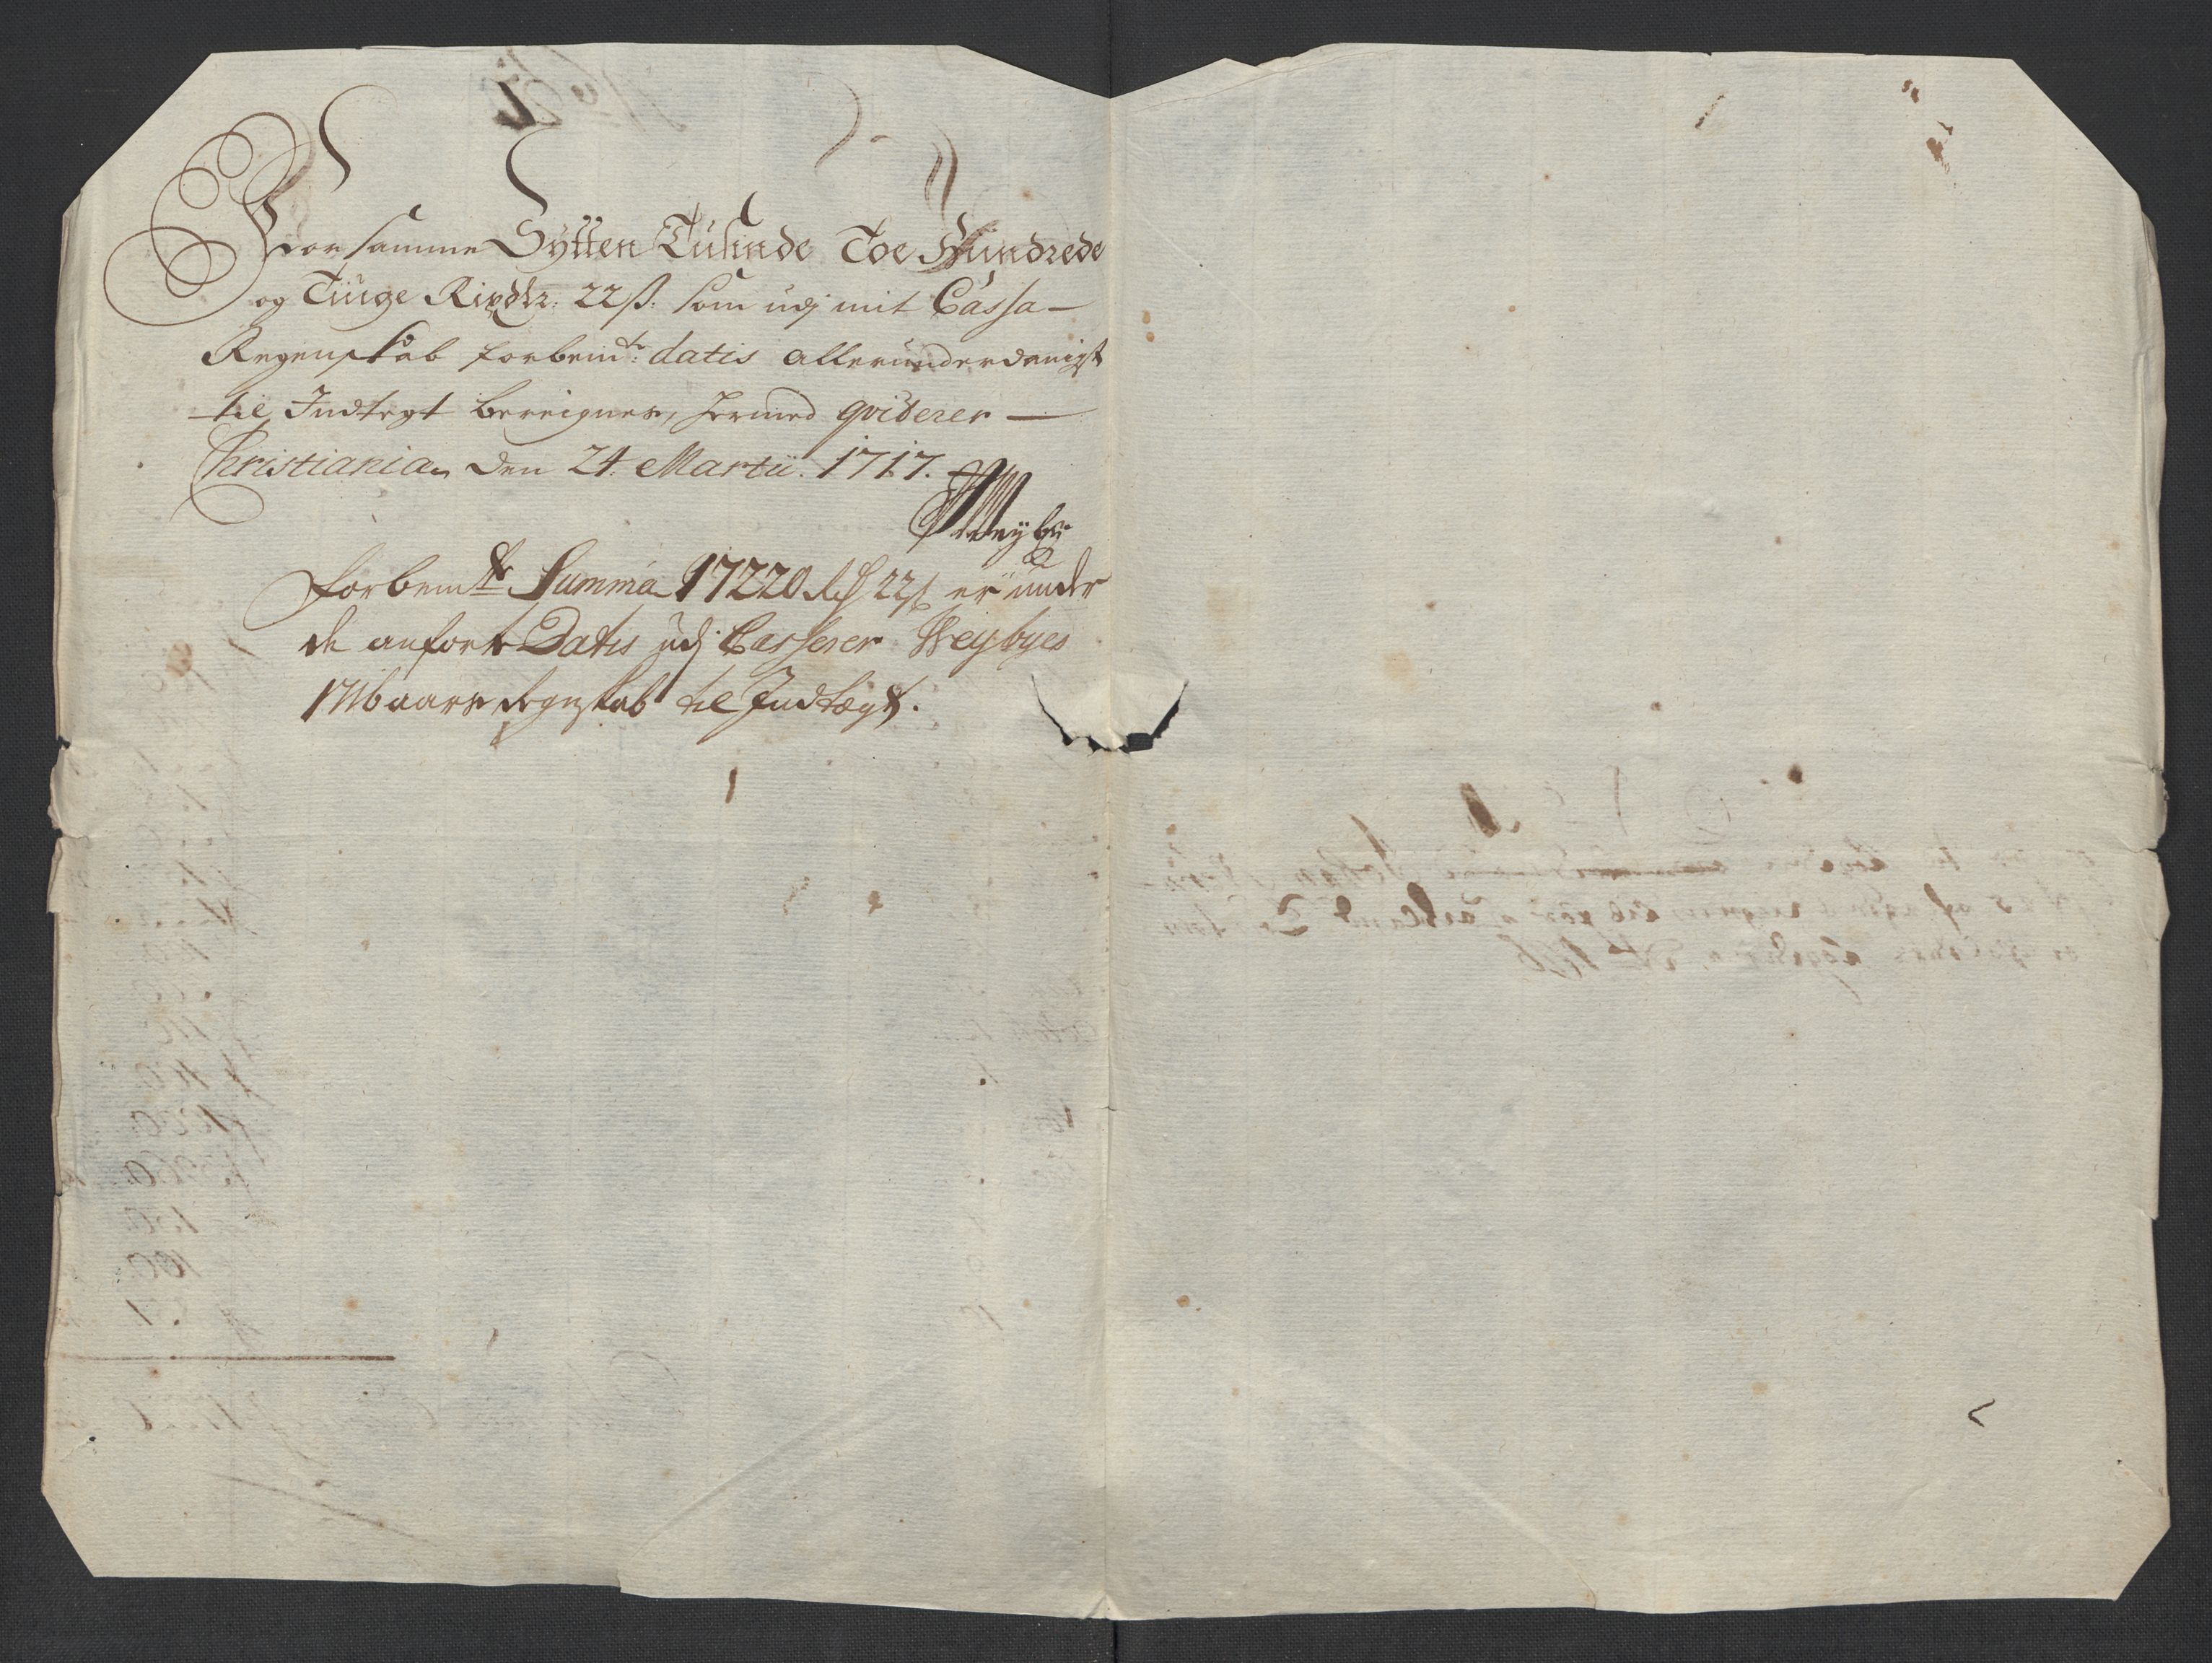 For samme Sytten Tusinde Toe Hundrede
og Tiuge Rixdlr: 22ß: som udj mit Cassa-
Regenskab forbemte: datis allerunderdanigst
til Indtegt bereignes, hermed qviterer —
Christiania den 24: Martii. 1717.
Weybye
forbemte Summa 17220 rd 22ß er under
de anførte Datis udj Casserer Weybyes
1716 aars Regnskab til Indtægt.